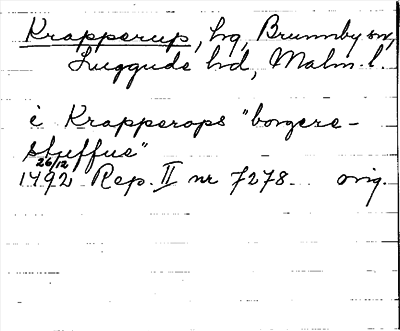 Krapperup, hg, Brunnby sn,
Luggude hd, Malm. l.
i Krapperops "borgere-
stuffue"
26/12
1492 Rep. II nr 7278 orig.